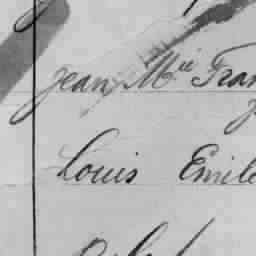 Jean M^ie Fran
Louis Emile